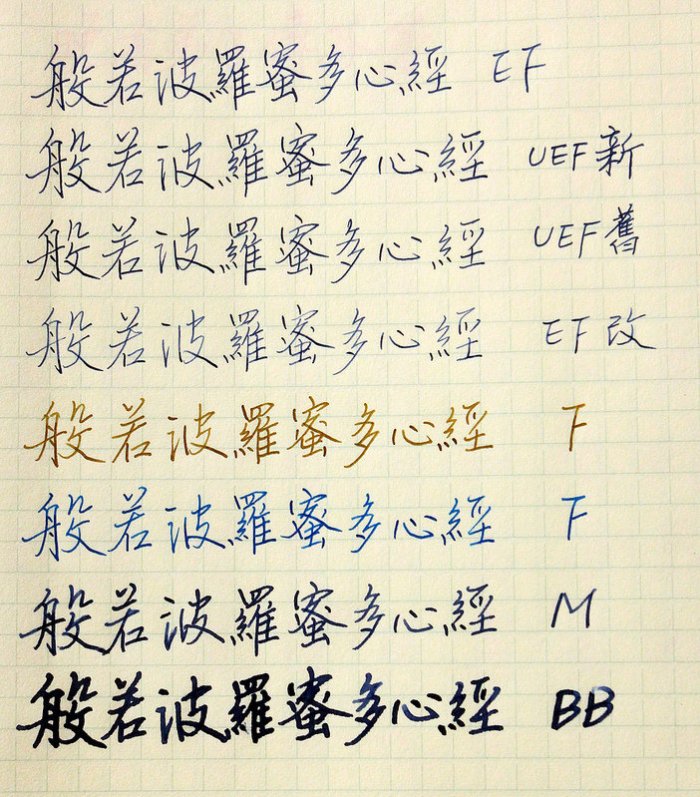 般若波羅蜜多心經 EF
般若波羅蜜多心經 UEF新
般若波羅蜜多心經 UEF舊
般若波羅蜜多心經 EF改
般若波羅蜜多心經 F
般若波羅蜜多心經 F
般若波羅蜜多心經 M
般若波羅蜜多心經 BB